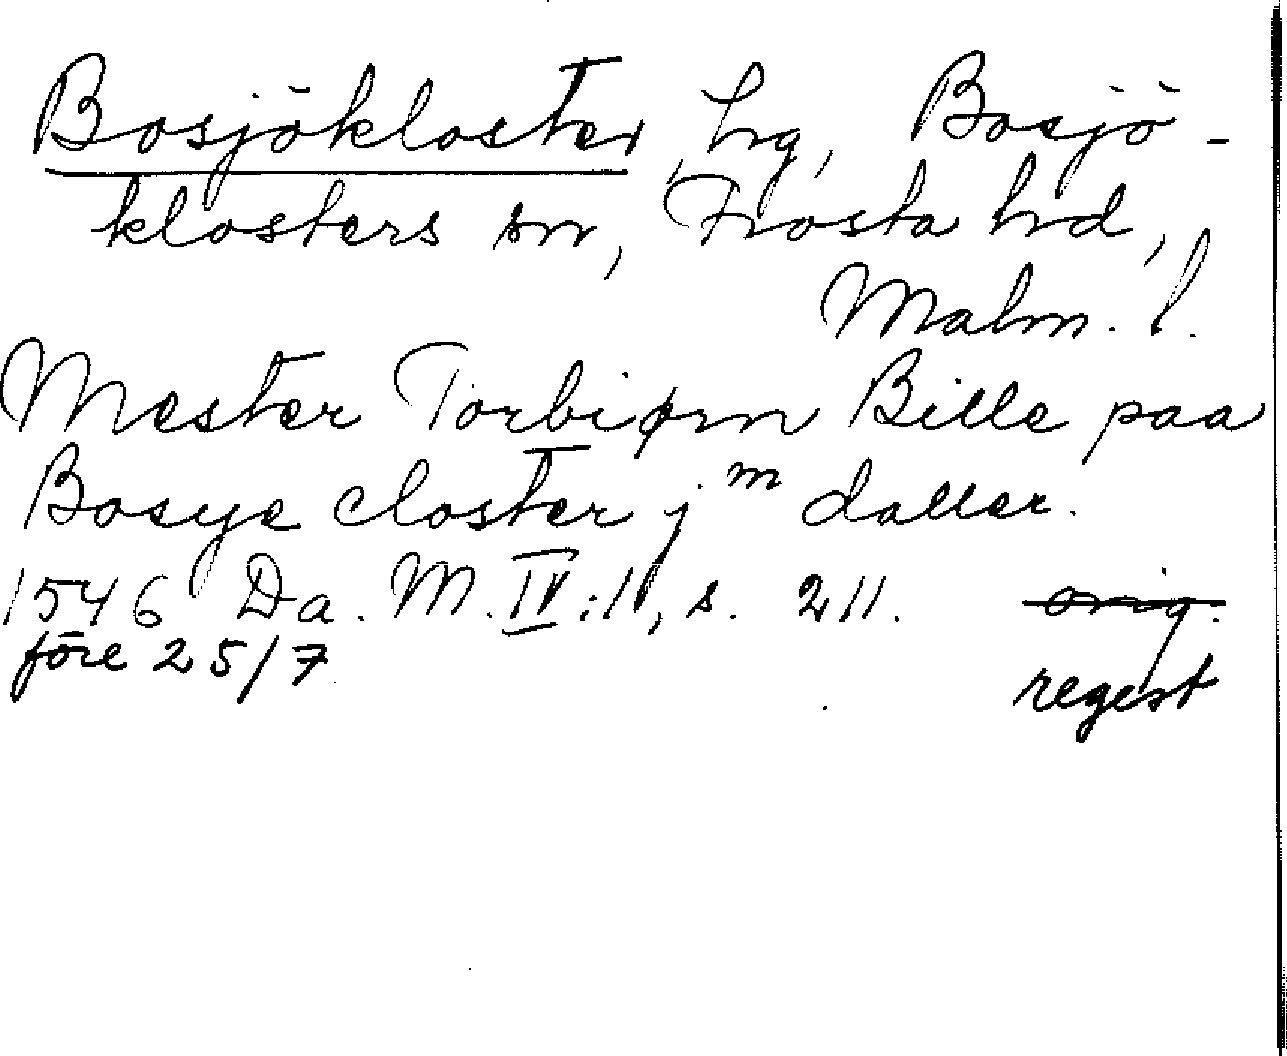 Bosjökloster, hrg, Bosjö-
klosters sn, Frosta hd,
Malm. l.
Mester Torbiørn Bille paa
Bosye closter jᵐ daller.
1546 Da. M. IV:1, s. 211. orig.
före 25/7 regest